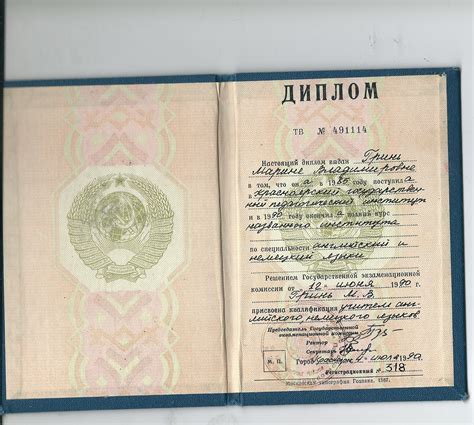 ДИПЛОМ
ТВ № 491114
Настоящий диплом выдан Гринь
Марине Владимировне
в том, что она в 1985 году поступила
в Красноярский государствен-
ный педагогический институт
и в 1990 году окончила полный курс
названного института
по специальности английский и
немецкий языки
Решением Государственной экзаменационной
комиссии от 12 июня 1990 г.
Гринь М. В.
присвоена квалификация учителя анг-
лийского немецкого языков
Председатель Государственной
экзаменационной комиссии
Ректор
Секретарь
М. П. Город Красноярск июля 1990
Регистрационный № 318
Московская типография Гознака. 1987.